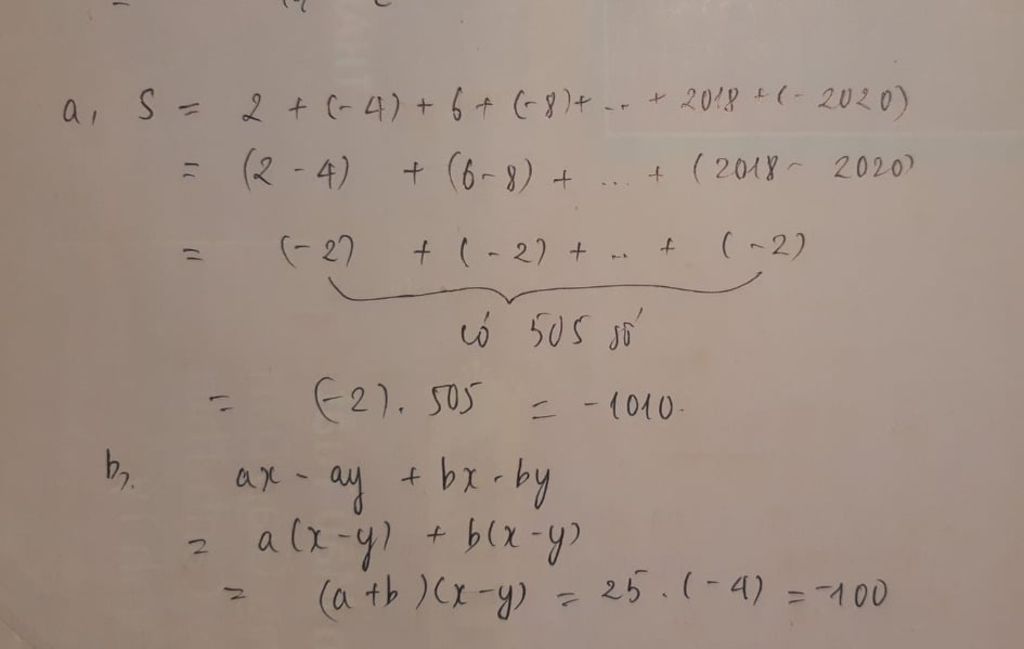 a, S = 2 + (-4) + 6 + (-8) + ... + 2018 + (- 2020)
= (2 - 4) + (6 - 8) + ... + (2018 - 2020)
= (-2) + (-2) + ... + (-2)
có 505 số
= (-2). 505 = -1010.
b, ax - ay + bx - by
= a(x-y) + b(x-y)
= (a+b)(x-y) = 25.(-4) = -100